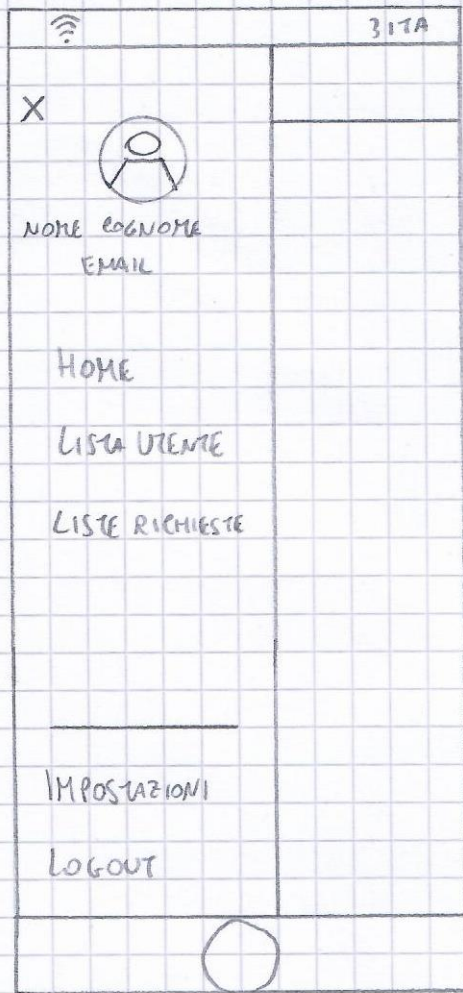 3ITA
X
NOME COGNOME
EMAIL
HOME
LISTA UTENTE
LISTE RICHIESTE
IMPOSTAZIONI
LOGOUT